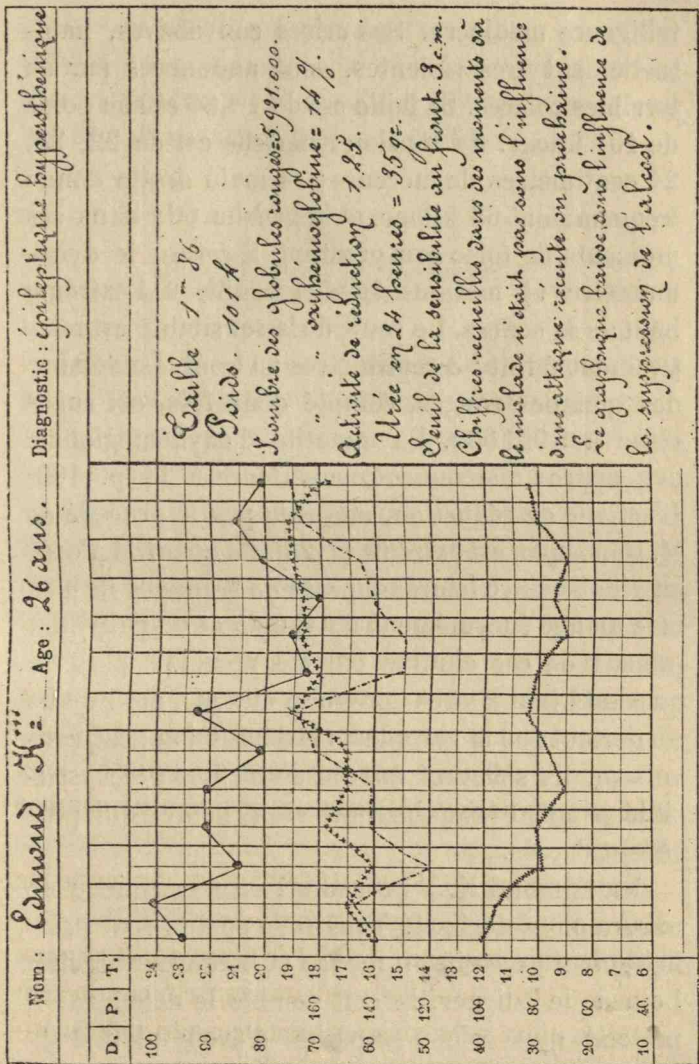 Nom : Edmond K... Age : 26 ans. Diagnostic : épileptique hypersthénique
D. P. T.
100 24
23
90 22
21
80 20
19
70 160 18
17
60 140 16
15
50 120 14
13
40 100 12
11
30 80 10
9
20 60 8
7
10 40 6
Taille 1m 86
Poids 101 k
Nombre des globules rouges=5.921.000.
" " oxyhémoglobine = 14 %
Activité de réduction 1,25.
Urée en 24 heures = 35 gr.
Seuil de la sensibilité au front 3 m.m.
Chiffres recueillis dans des moments où
le malade n'était pas sous l'influence
d'une attaque récente ou prochaine.
Le graphique baisse sous l'influence de
la suppression de l'alcool.